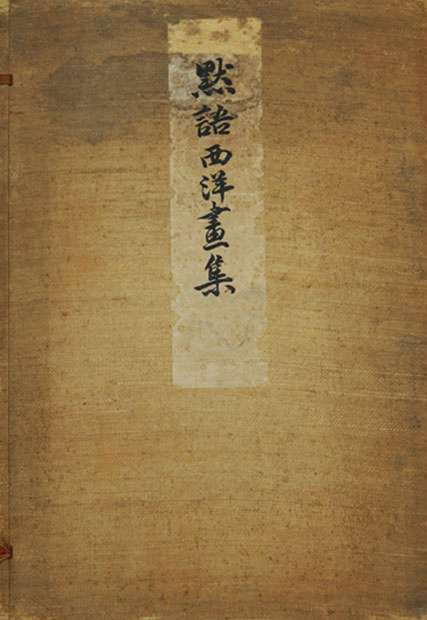 黙語西洋畫集